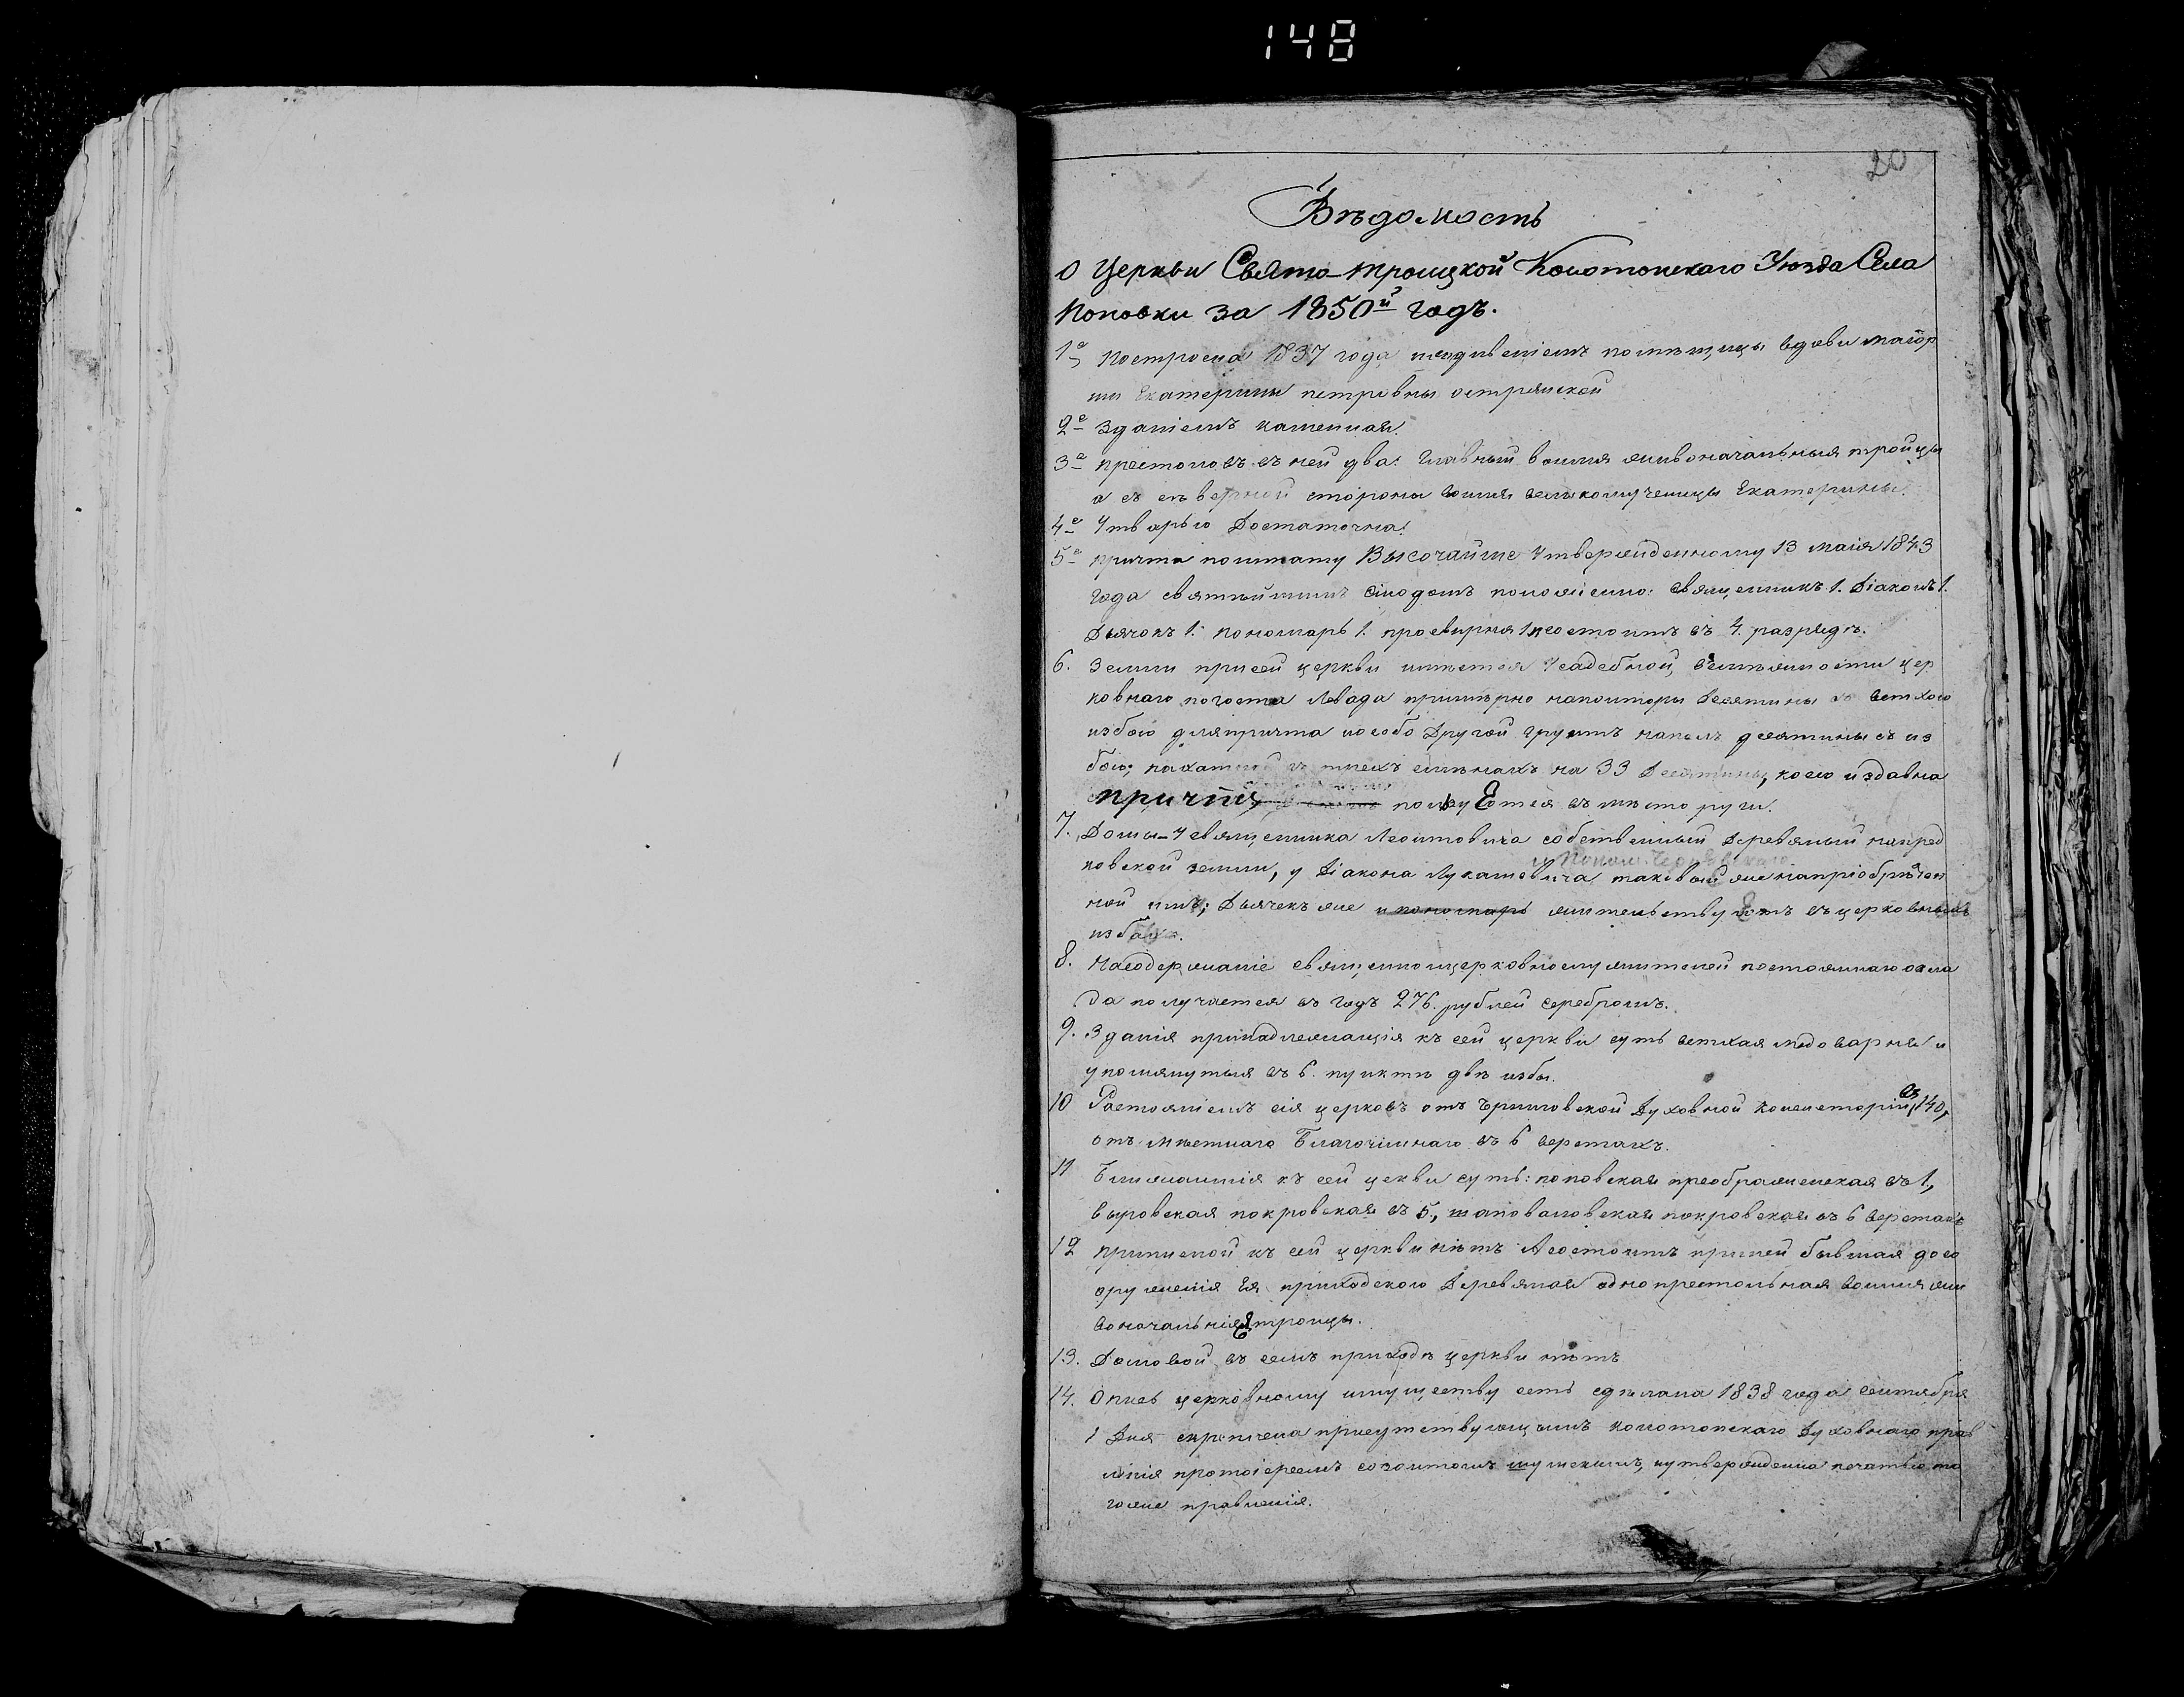 148
20
Вѣдомость
о Церкви Свято-троицкой Конотопскаго Уѣзда Села
Поповки за 1850й годъ.
1е Построена 1837 года иждивеніемъ помѣщицы вдовы маіор
ши Екатерины петровны острянской
2е Зданіемъ каменная.
3е престоловъ въ ней два: Главный воимя живоначальныя тройцы
а съ сѣверной стороны воимя великомученицы Екатерины.
4е Утварью Достаточна.
5е причта поштату Высочайше Утвержденному 13 маія 1843
года святѣйшимъ Синодомъ положено: Священникъ 1. Діаконъ 1.
Дьячокъ 1. пономарь 1. просвирня 1 и состоитъ въ 4. разрядѣ.
6. Земли присей церкви имѣется Усадебной, всмѣжности цер
ковнаго погоста Левада примѣрно наполторы Десятины съ ветхою
избою дляпричта иособо Другой грунтъ напелъ десятины съ из
бою; пахатной въ трехъ смѣнахъ на 33 Десятины, коею издавна
причтъ пользуЕтся въ мѣсто руги.
7. Домы - Усвященника Леонтовича собственный Деревяный напред
и Поном.
ковской земли, у Діакона Лукашевича таковый же напріобрѣтен
ной имъ; Дьячекъ же и пономарь жительствуютъ въ церковныхъ
избахъ.
8. Насодержаніе священноцерковнослужителей постояннаго окла
да получается въ годъ 276. рублей серебромъ.
9. Зданія принадлежащія къ сей церкви суть ветхая медоварня и
упомянутыя въ 6. пунктѣ двѣ избы.
10 Растояніемъ сія церковъ отъ Черниговской Духовной консисторіи въ 140,
отъ мѣстнаго Благочиннаго въ 6 верстахъ.
11 Ближайшія къ сей цекви суть: поповская преображенская въ 1,
выровская покровская въ 5, шаповаловская покровская въ 6 верстахъ
12 приписной къ сей церкви нѣтъ А состоитъ приней бывшая досо
оруженія Ея приходскою Деревяная однопрестольная воимя жи
воначальнія троицы.
13. Домовой въ семъ приходѣ церкви нѣтъ
14. Опись церковному имуществу есть сдѣлана 1838 года сентября
1 Дня скрѣплена присутствующимъ конотопскаго Духовнаго прав
ленія протоіереемъ созонтомъ шумскимъ, иутверждена печатью то
гоже правленія.